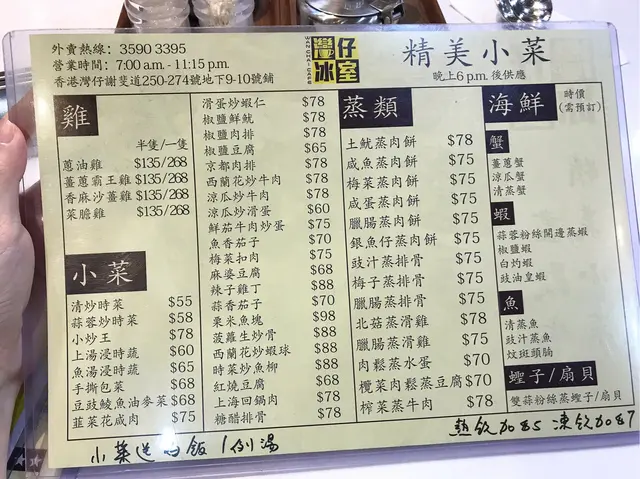 外賣熱線：3590 3395
營業時間：7:00 a.m. - 11:15 p.m.
香港灣仔謝斐道250-274號地下9-10號鋪
灣仔冰室
精美小菜
晚上6 p.m. 後供應
雞
半隻/一隻
蔥油雞 $135/268
薑蔥霸王雞 $135/268
香麻沙薑雞 $135/268
菜膽雞 $135/268
小菜
清炒時菜 $55
蒜蓉炒時菜 $58
小炒王 $78
上湯浸時蔬 $60
魚湯浸時蔬 $65
手撕包菜 $68
豆豉鯪魚油麥菜 $68
韮菜花咸肉 $75
滑蛋炒蝦仁 $78
椒鹽鮮魷 $78
椒鹽肉排 $78
椒鹽豆腐 $65
京都肉排 $78
西蘭花炒牛肉 $78
涼瓜炒牛肉 $78
涼瓜炒滑蛋 $60
鮮茄牛肉炒蛋 $75
魚香茄子 $70
梅菜扣肉 $75
麻婆豆腐 $68
辣子雞丁 $88
蒜香茄子 $70
粟米魚塊 $98
菠蘿生炒骨 $88
西蘭花炒蝦球 $88
時菜炒魚柳 $88
紅燒豆腐 $68
上海回鍋肉 $78
糖醋排骨 $78
蒸類
土魷蒸肉餅 $78
咸魚蒸肉餅 $75
梅菜蒸肉餅 $75
咸蛋蒸肉餅 $75
臘腸蒸肉餅 $75
銀魚仔蒸肉餅 $75
豉汁蒸排骨 $75
梅子蒸排骨 $75
臘腸蒸排骨 $75
北菇蒸滑雞 $78
臘腸蒸滑雞 $75
肉鬆蒸水蛋 $70
欖菜肉鬆蒸豆腐 $70
榨菜蒸牛肉 $78
海鮮
時價
(需預訂)
蟹
薑蔥蟹
涼瓜蟹
清蒸蟹
蝦
蒜蓉粉絲開邊蒸蝦
椒鹽蝦
白灼蝦
豉油皇蝦
魚
清蒸魚
豉汁蒸魚
炆斑頭腩
蟶子/扇貝
雙蒜粉絲蒸蟶子/扇貝
小菜送白飯 1例湯
熱飲加$5 凍飲加$7